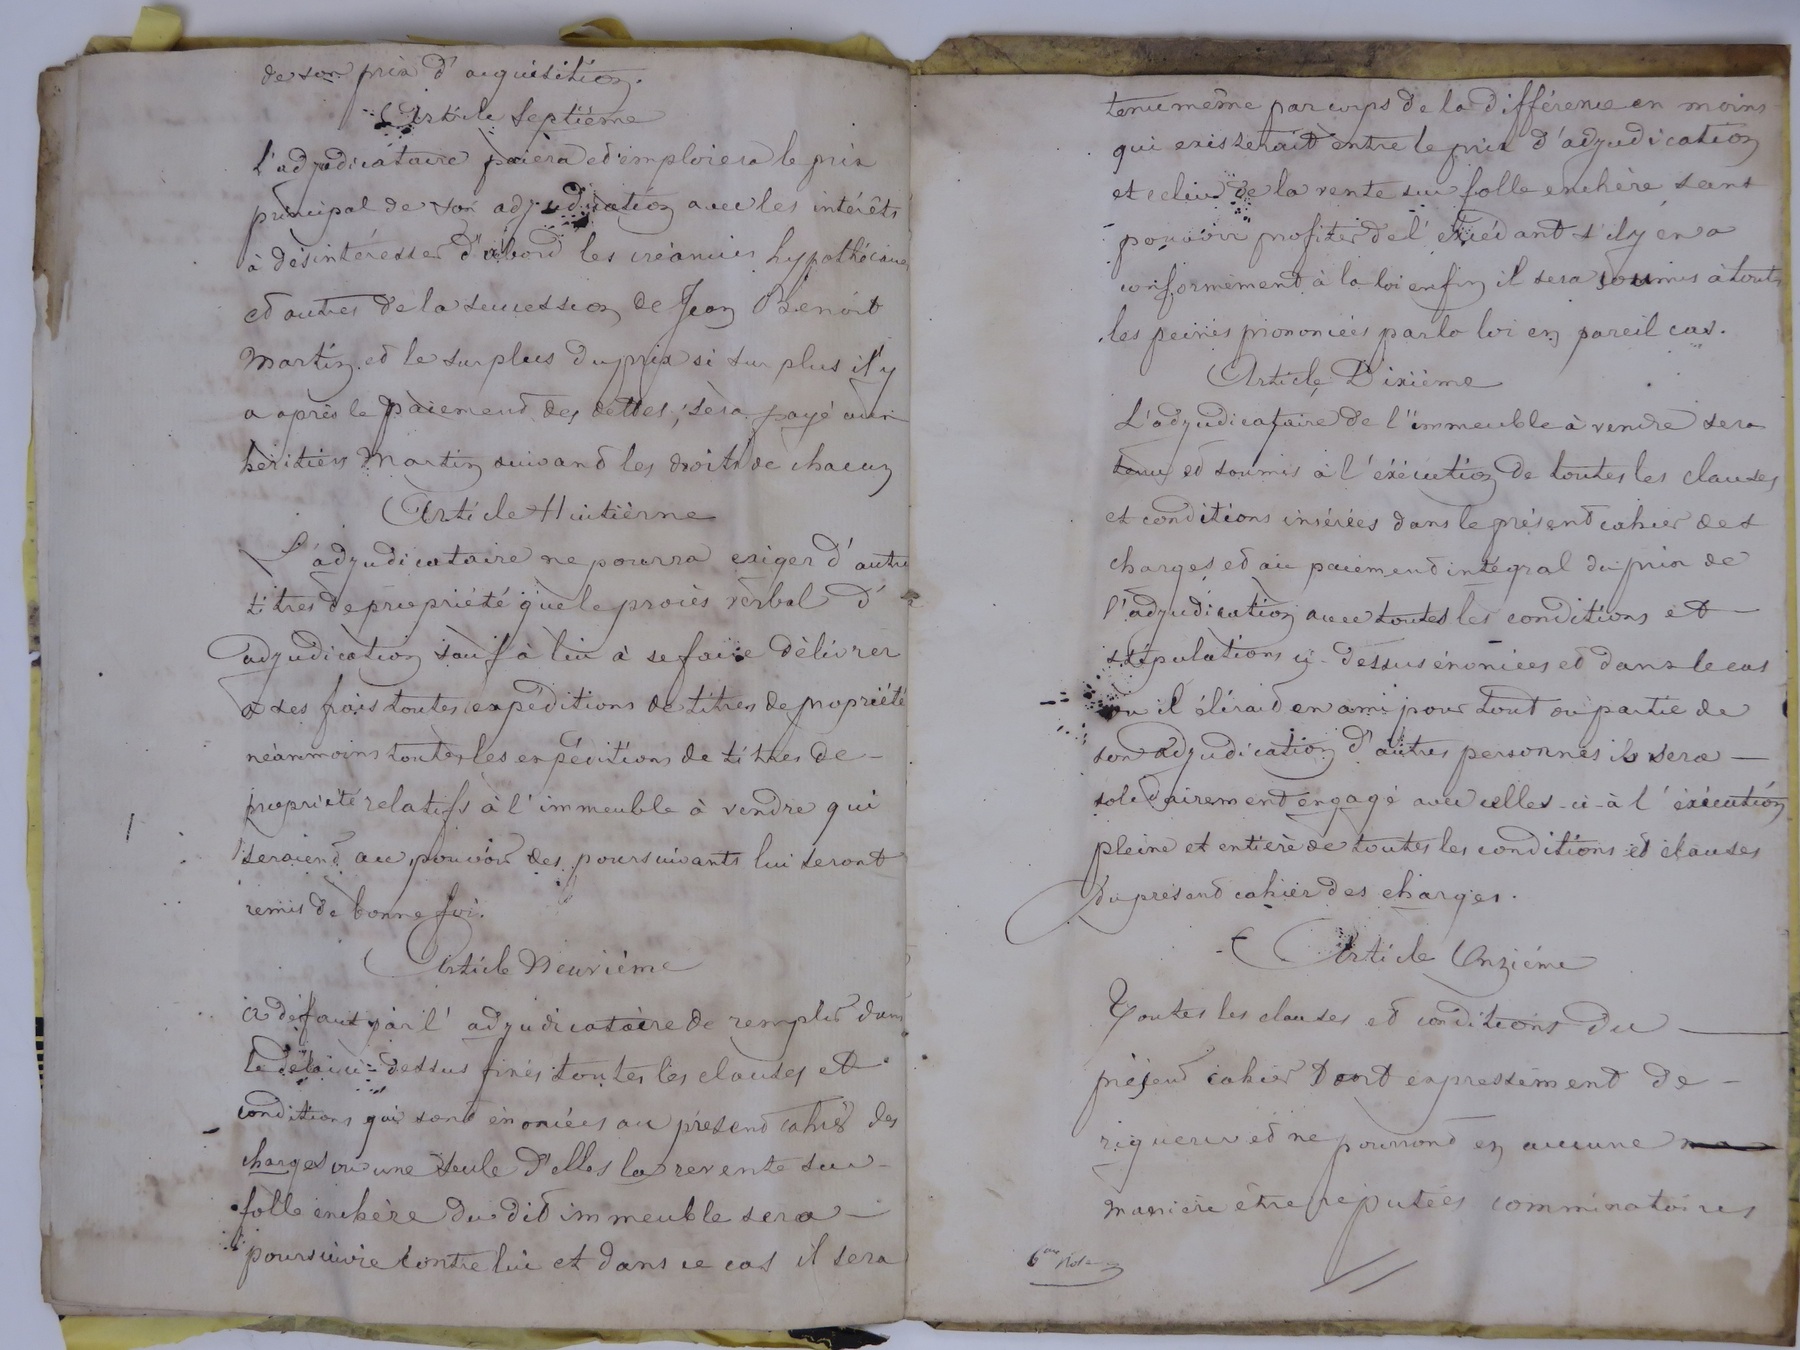 de son prix d'acquisition.
Article Septième
L'adjudicataire paiera et emploiera le prix
principal de son adjudication avec les intérêts
à désintéresser d'abord les créanciers hypothécaires
et autres de la succession de Jean Benoit
Martin et le surplus du prix si surplus il y
a après le paiement des dettes, sera payé aux
héritiers Martin suivant les droits de chacun
Article Huitième
L'adjudicataire ne pourra exiger d'autres
titres de propriété que le procès verbal d'
adjudication sauf à lui à se faire délivrer
à ses frais toutes expéditions de titres de propriété
néanmoins toutes les expéditions de titres de —
propriété relatifs à l'immeuble à vendre qui
seraient au pouvoir des poursuivants lui seront
remis de bonne foi.
Article Neuvième
A défaut par l'adjudicataire de remplir dans
le délai ci-dessus fixés toutes les clauses et
conditions qui sont énoncées au présent cahier des
charges ou une seule d'elles la revente sur —
folle enchère du dit immeuble sera —
poursuivie contre lui et dans ce cas il sera
tenu même par corps de la différence en moins
qui existerait entre le prix d'adjudication
et celui de la vente sur folle enchère sans
pouvoir profiter de l'excédant s'il y en a
conformément à la loi enfin il sera soumis à toutes
les peines prononcées par la loi en pareil cas.
Article Dixième
L'adjudicataire de l'immeuble à vendre sera
tenu et soumis à l'éxécution de toutes les clauses
et conditions insérées dans le présent cahier des
charges et au paiement intégral du prix de
l'adjudication avec toutes les conditions et —
stipulations ci-dessus énoncées et dans le cas
ou il élirait en ami pour tout ou partie de
son adjudication d'autres personnes il sera —
solidairement engagé avec celles-ci à l'éxécution
pleine et entière de toutes les conditions et clauses
du présent cahier des charges.
Article Onzième
Toutes les clauses et conditions du —
présent cahier sont expressément de —
rigueur et ne pourront en aucune
manière être réputées comminatoires
6me